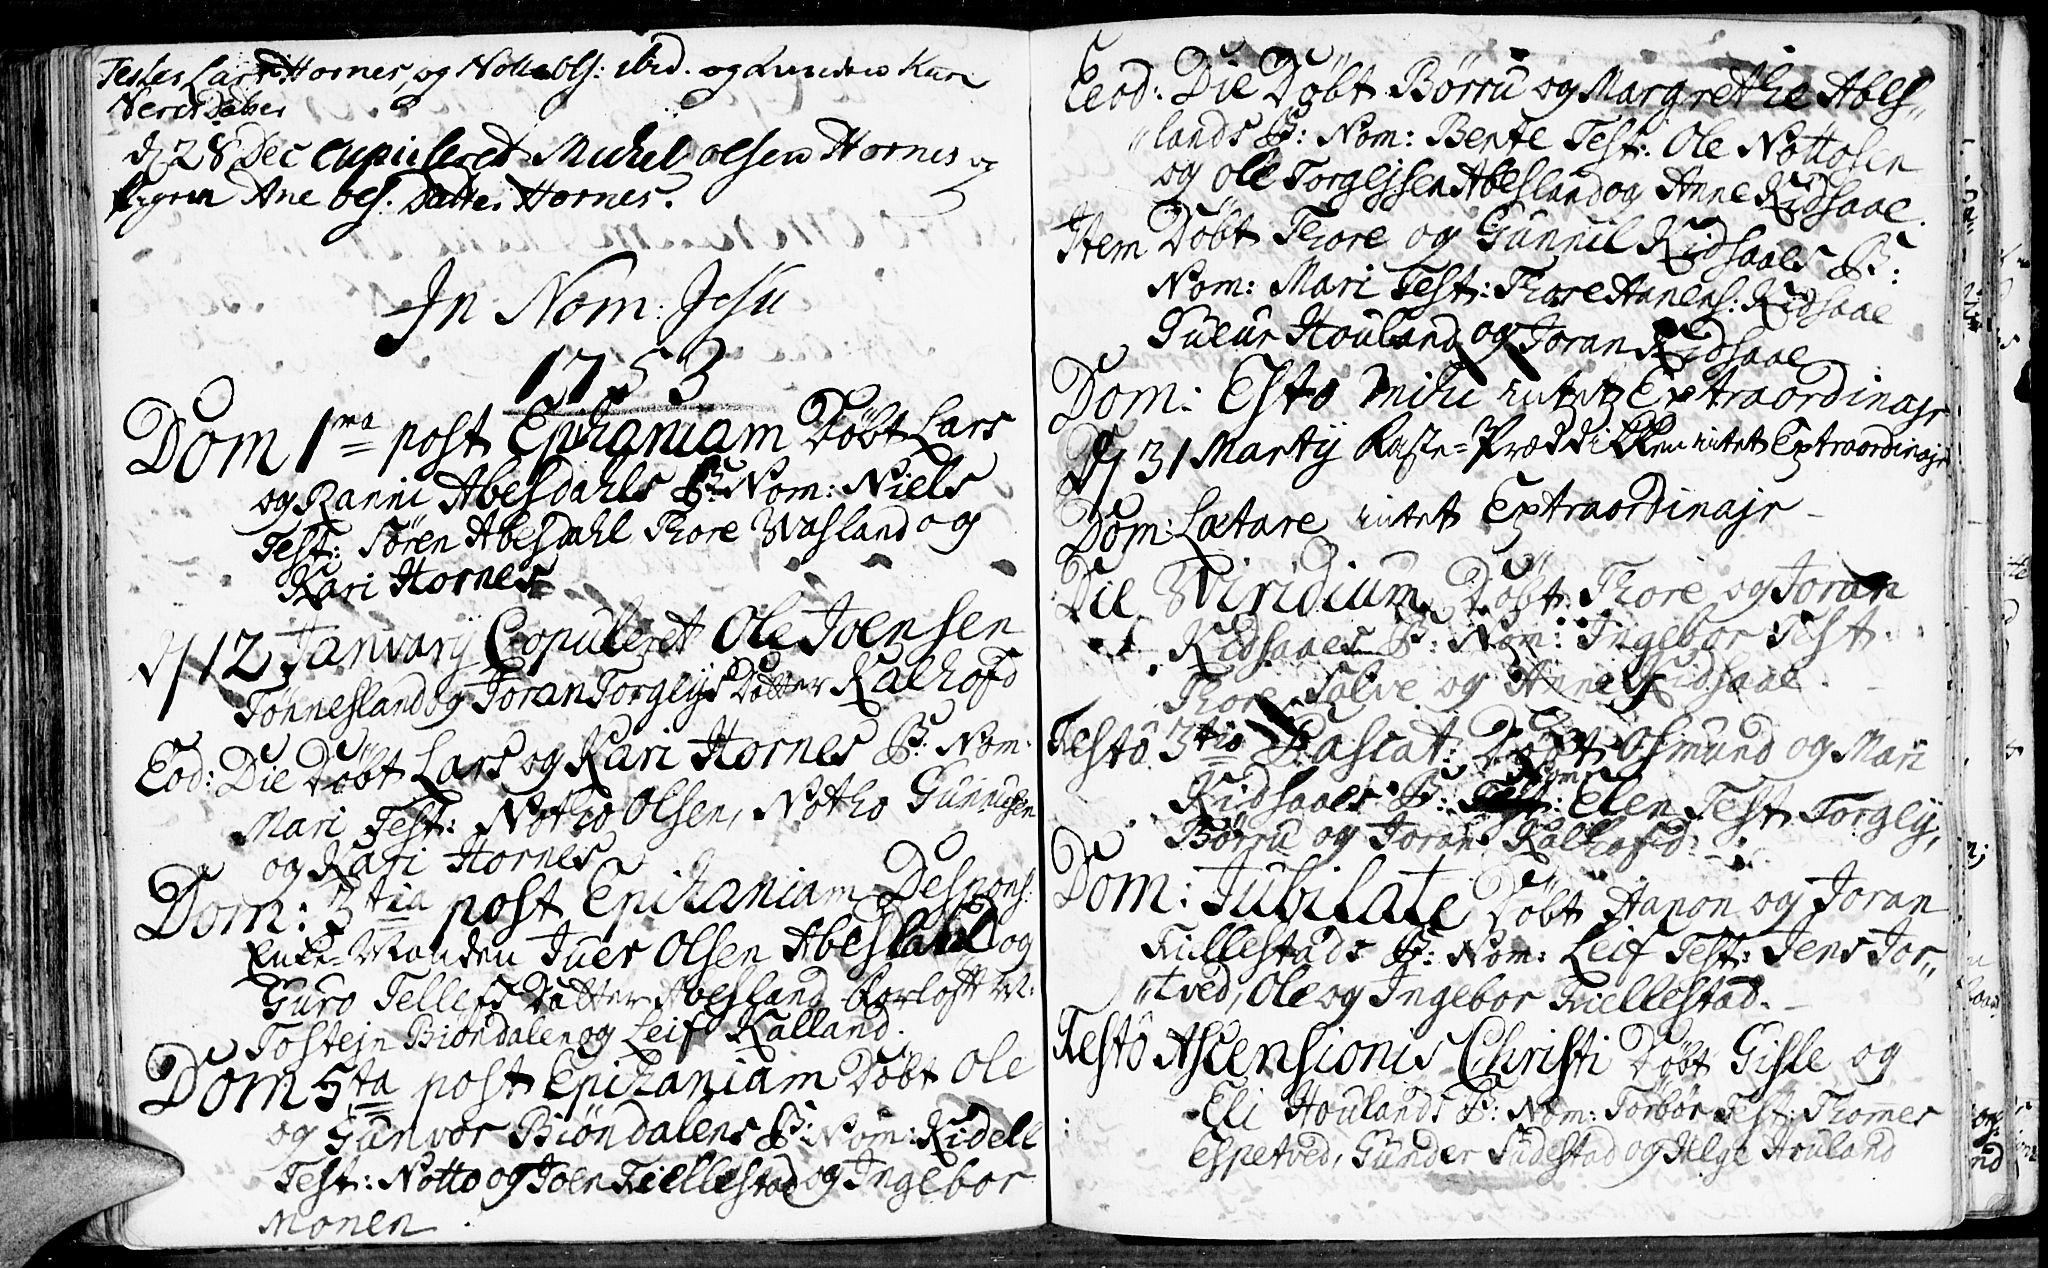 Testes Lars Hornes, og Notto Ols: ibid. og
d 28 Dec Copuleret Michel olsen Hornes og
Pigen Ane Ols. Datter Hornes.
In Nom: Jesu
1753
Dom 1ma post Epihaniam Døbt Lars
og Ranni Abesdahls B: Nom: Niels
Test: Søren Abesdahl Thore Wasland og
Kari Hornes
d 12 Januarij Copuleret Ole Joensen
Tønnesland og Joran Torgeijs Datter Kalhofd
Eod: Die Døbt Lars og Kari Hornes B: Nom:
Mari Test: Notho Olsen, Notho Gunnulsen
og Kari Hornes
Dom: 3tia post Epihaniam Despons:
Enke-Manden Juer Olsen Abesland og
Guro Tellefs Datter Abesland Forloft M:
Tostejn Biøndalen og Leif Kalland.
Dom 5ta post Epihaniam Døbt Ole
og Gunvor Biøndalens B: Nom: Kidell
Test: Notto og Joen Kiellestad og Ingebor
Monen
Eod: Die Døbt Børru og Margrethe Abes„
„lands B: Nom: Bente Test: Ole Nottosen
og Ole Torgejsen Abesland og Anne Kidsaae.
Item Døbt Thore og Gunnil Kidsaaes B:
Nom: Mari Test: Thore Hanens: Kidsaae
Gueur Houland og Joran Kidsaae
Dom: Esto Mihi intet Extraordinajr
d 31 Martij Faste=Prædikken intet Extraordinajr
Dom: Lætare intet Extraordinajr
Die Viridium Døbt: Thore og Joran
Kidsaaes B: Nom: Ingebor Test:
Thore, Salve og Anne Kidsaae.
Festo 3tio Pascat: Døbt Osmund og Mari
Kidsaaes B: Nom: Elen Test: Torgeij,
Børru og Joran Kalhofd.
Dom: Jubilate Døbt Hanon og Joran
Kiellestads B: Nom: Leif Test: Jens Jor„
„tved, Ole og Ingebor Kiellestad.
Festo Ascensionis Christi Døbt Gisle og
Eli Houlands B: Nom: Torbor Test: Thomes
Espetved, Gunder Sudestad og Helge Houland